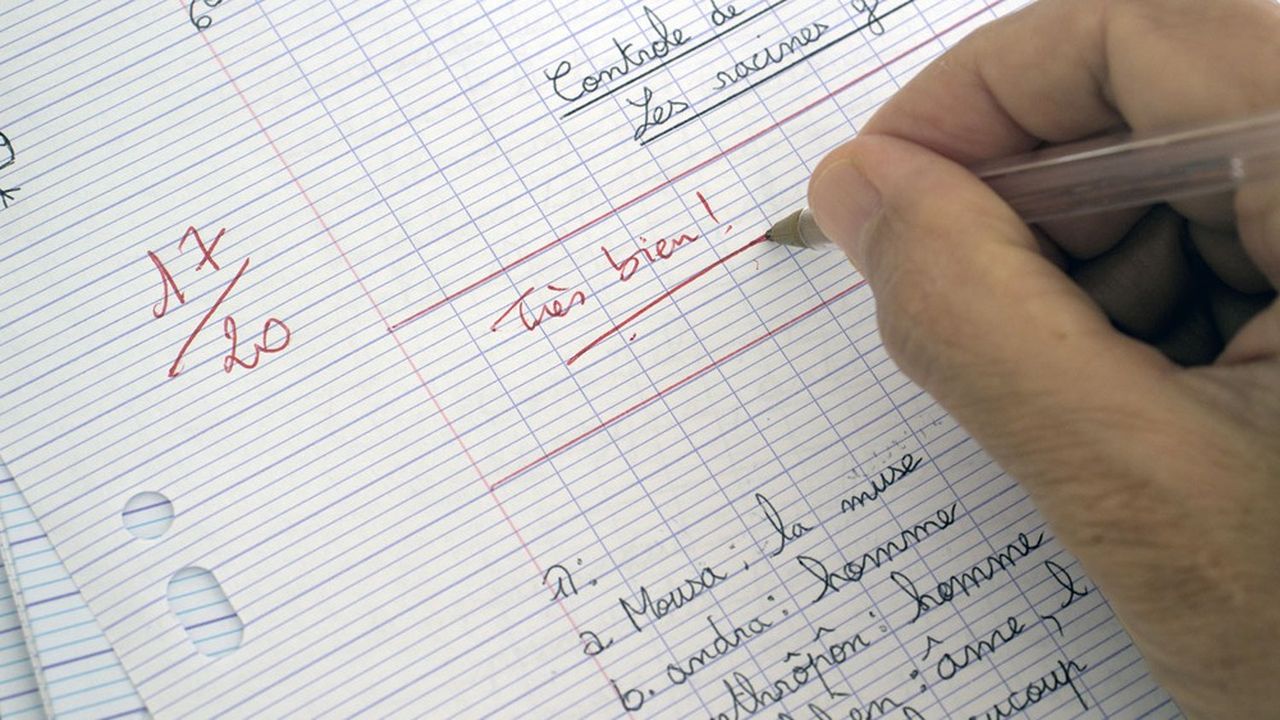 6e
Controle de
Les racines g
17/20
Très bien !
1:
a. Mousa : la muse
b. andra : homme
thrôpôn : homme
hen : âme, l
eaucoup